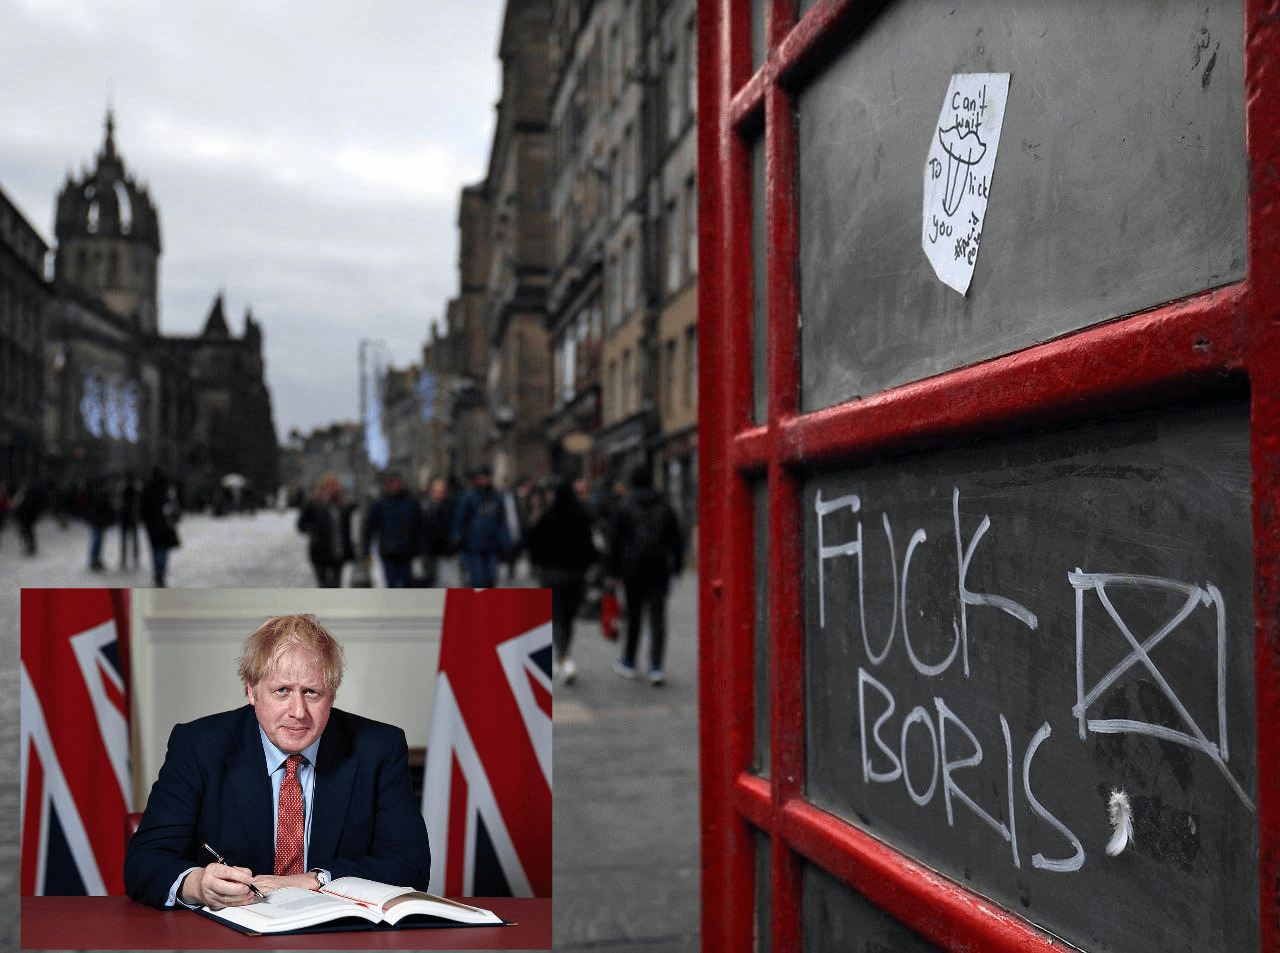 Can't
wait
To lick
you
FUCK
BORIS